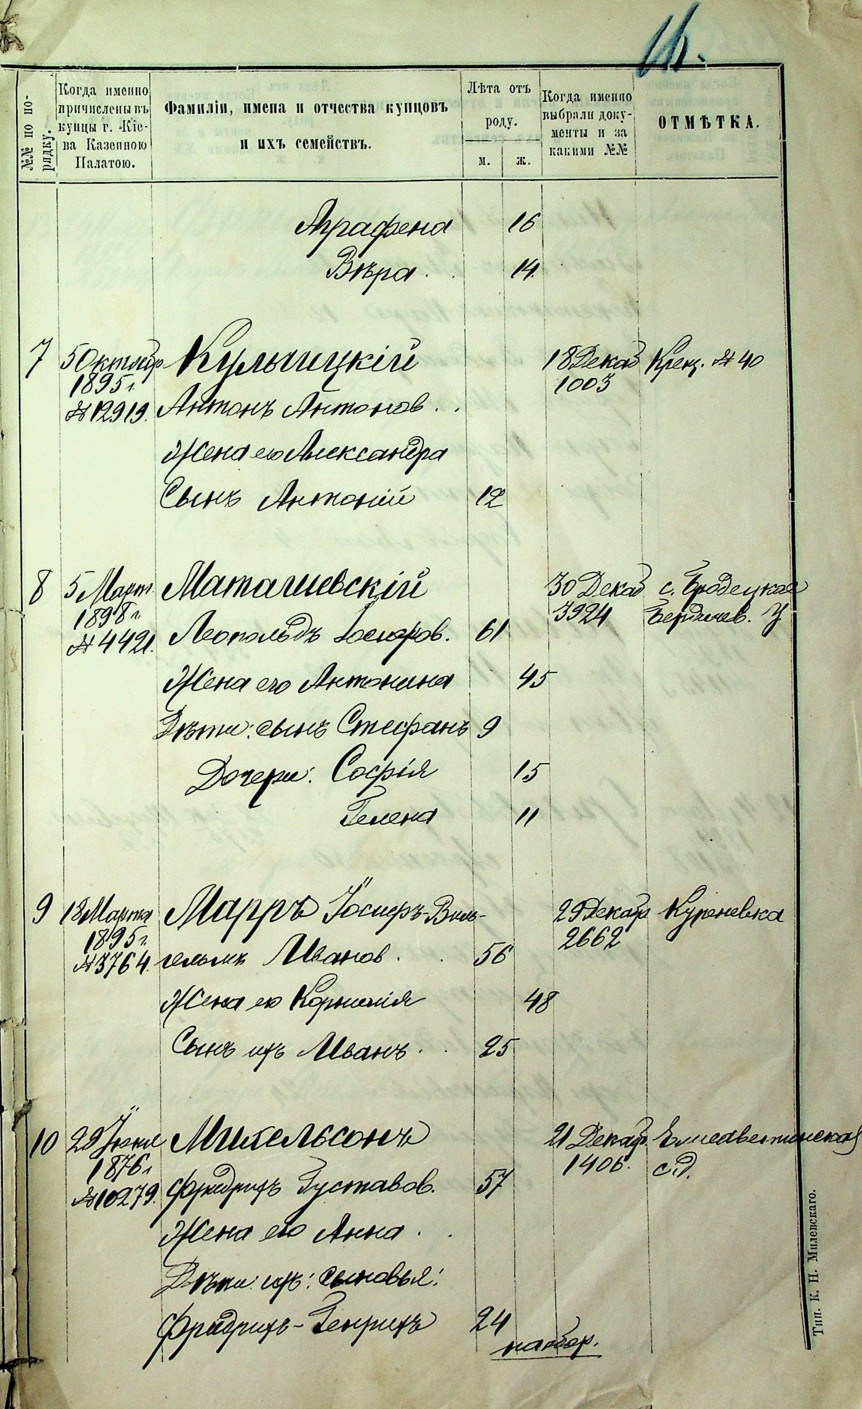 16.
№№ по по-
рядку.
Когда именно
причислены въ
купцы г. Кіе-
ва Казенною
Палатою.
Фамиліи, имена и отчества купцовъ
и ихъ семействъ.
Лѣта отъ
роду.
м.
ж.
Когда именно
выбрали доку-
менты и за
какими №№
ОТМѢТКА.
Аграфена 16
Вѣра . . 14
7 5 Октября Кульчицкій 18 Декаб Крещ. № 40
1895 г 1003
№ 12919. Антонъ Антонов. .
Жена его Александра
Сынъ Антоній 12
8 5 Март Маташевскій 30 Декаб с. Бродецкое
1898 г 3924 Бердичев. у
№ 4421. Леопольдъ Іосифов. 61
Жена его Антонина 45
Дѣти: сынъ Стефанъ 9
Дочери: Софія 15
Гелена 11
9 18 Марта Марръ Іосифъ-Виль- 29 Декабр Куреневка
1895 г 2662
№ 3764. гельмъ Иванов. . 56
Жена его Корнилія 48
Сынъ ихъ Иванъ. . 25
10 22 Іюня Михельсонъ 21 Декабр. Елисаветинская
1876 г 1406. с.д.
№ 10279. Фридрихъ Густавов. 57
Жена его Анна . .
Дѣти ихъ: сыновья:
Фридрихъ-Генрихъ 24
на обор.
Тип. К. Н. Милевскаго.